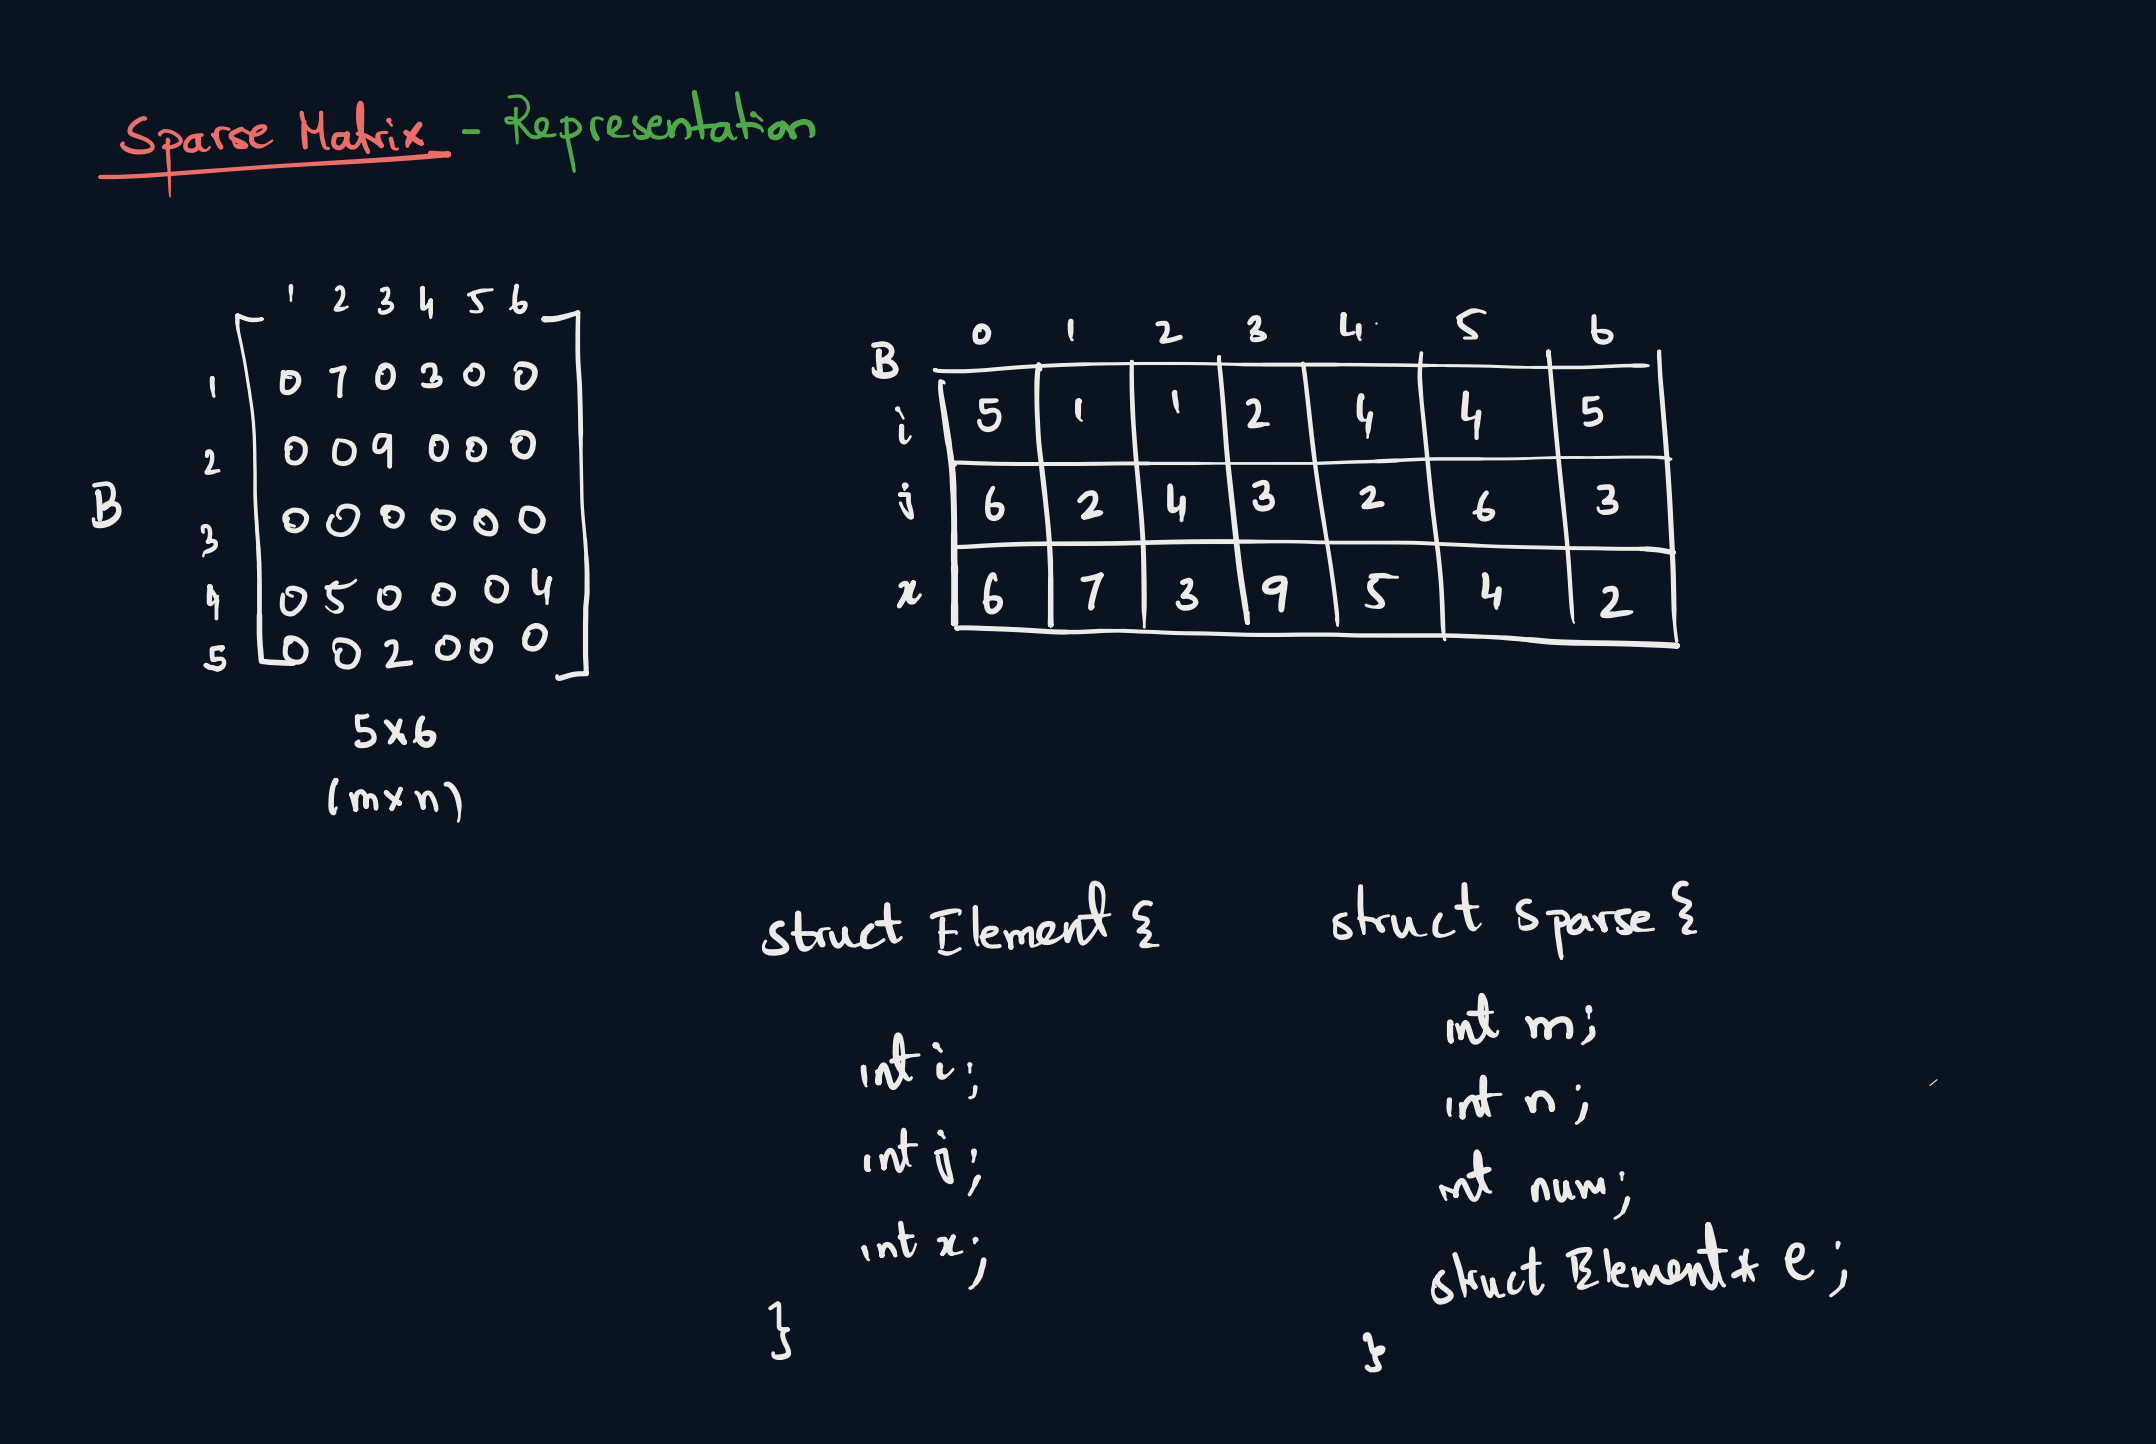 Sparse Matrix - Representation
1 2 3 4 5 6
1 0 7 0 3 0 0
2 0 0 9 0 0 0
B
3 0 0 0 0 0 0
4 0 5 0 0 0 4
5 0 0 2 0 0 0
5x6
(mxn)
B 0 1 2 3 4 5 6
i 5 1 1 2 4 4 5
j 6 2 4 3 2 6 3
x 6 7 3 9 5 4 2
struct Element {
int i;
int j;
int x;
}
struct Sparse {
int m;
int n;
int num;
struct Element* e;
}